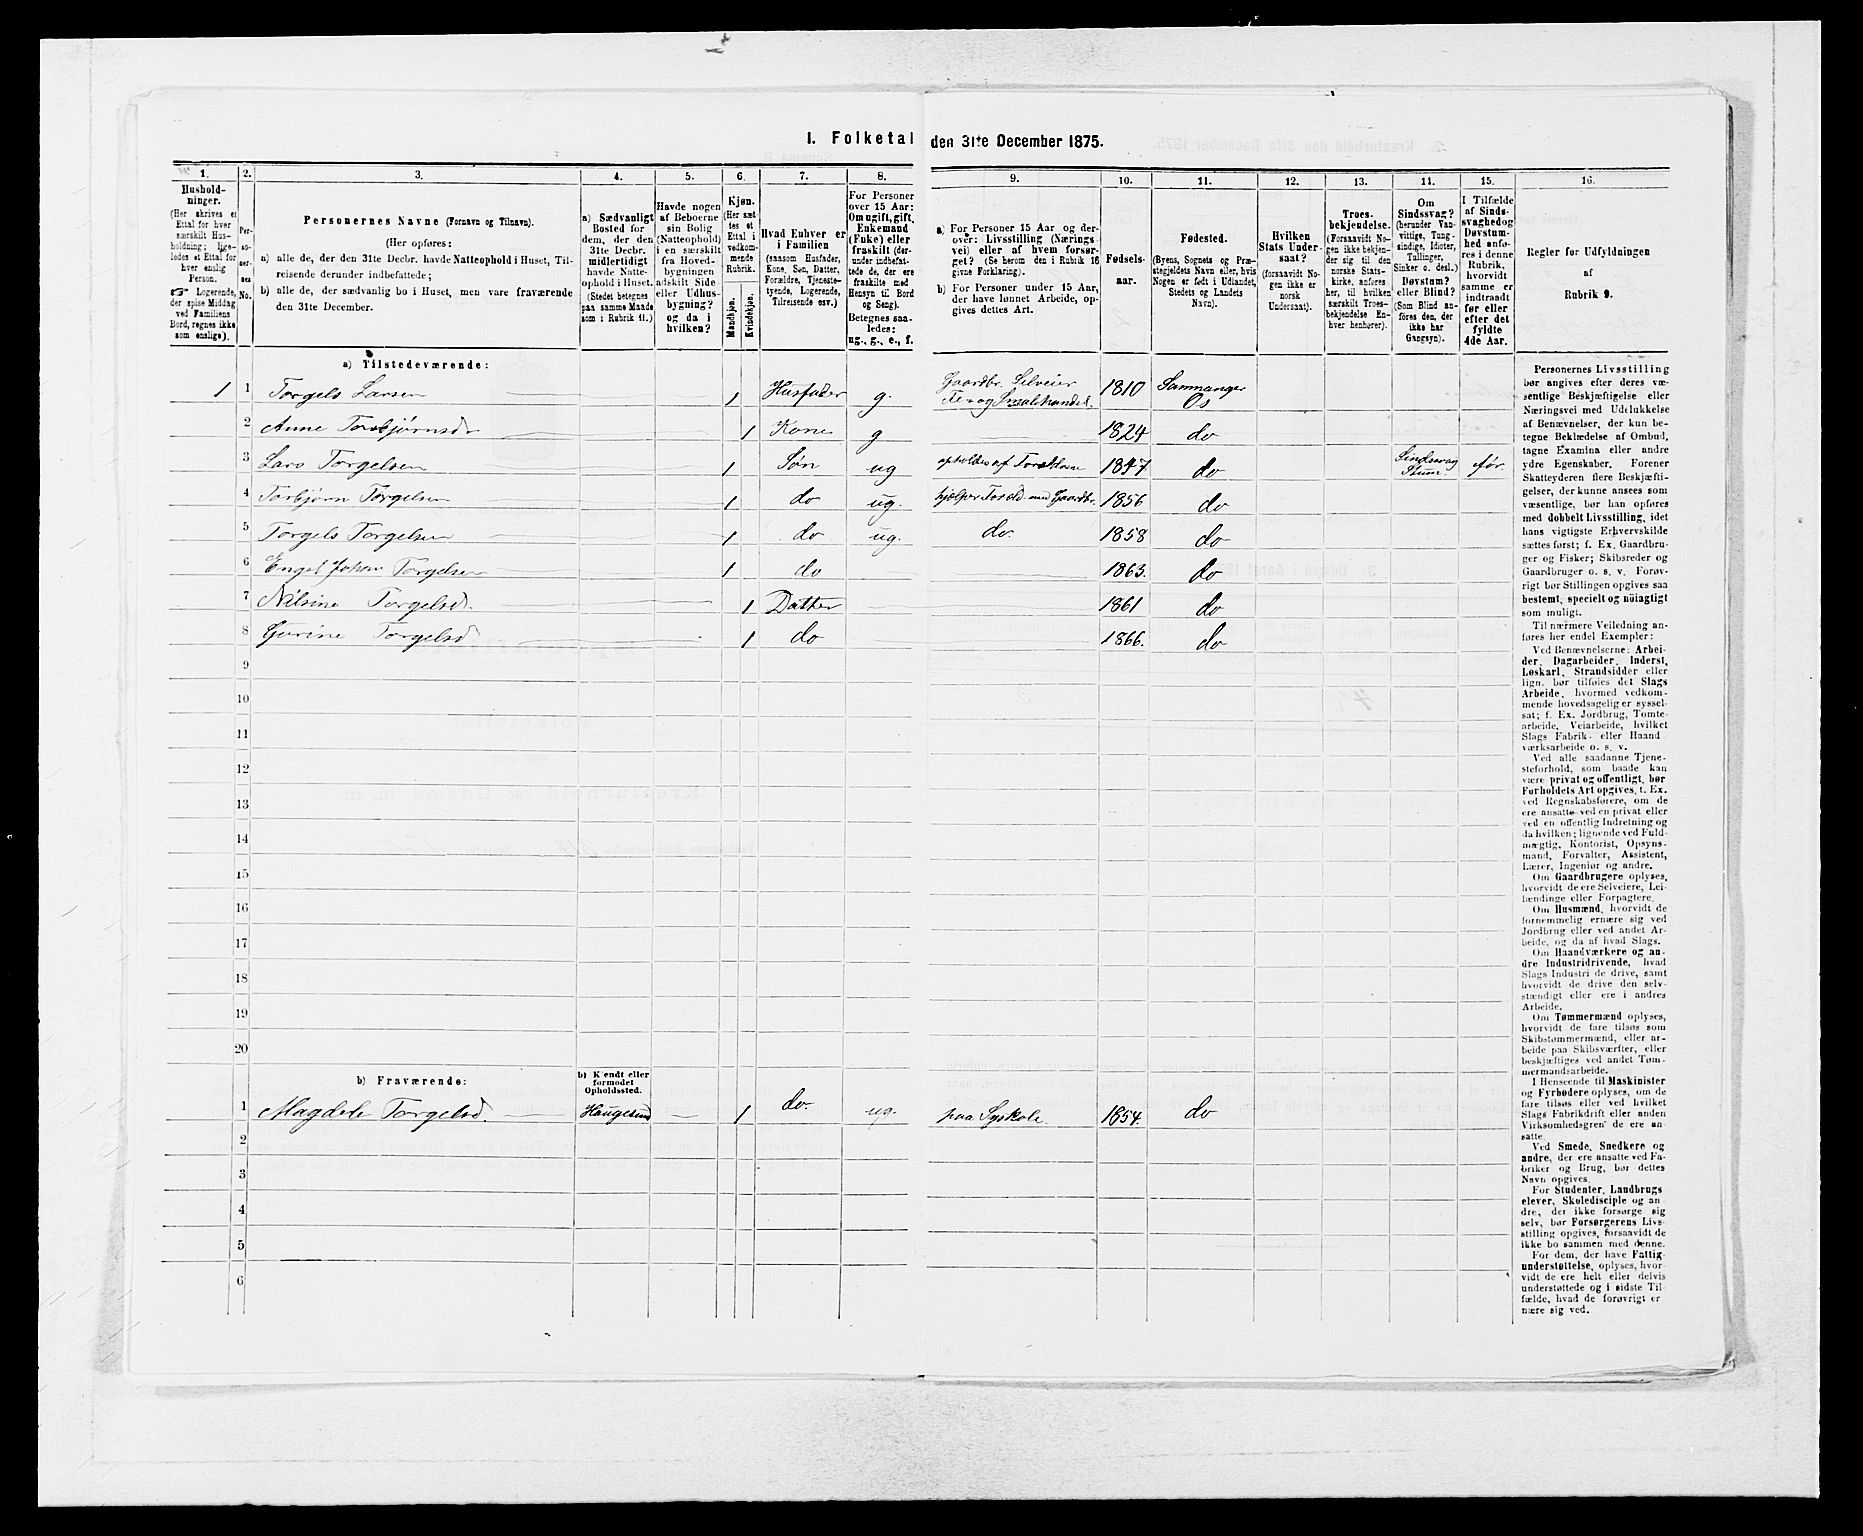 I. Folketal den 31te December 1875.
1. 2. 3. 4. 5. 6. 7. 8. 9. 10. 11. 12. 13. 14. 15. 16.
Hushold-
ninger.
(Her skrives et
Ettal for hver
særskilt Hus-
holdning; lige-
ledes et Ettal for
hver enslig
Person.
☞ Logerende,
der spise Middag
ved Familiens
Bord, regnes ikke
som enslige).
Per-
so-
ner-
nes
No.
Personernes Navne (Fornavn og Tilnavn).
(Her opføres:
a) alle de, der den 31te Decbr. havde Natteophold i Huset, Til-
reisende derunder indbefattede;
b) alle de, der sædvanlig bo i Huset, men vare fraværende
den 31te December.
a) Sædvanligt
Bosted for
dem, der den
31te Decbr.
midlertidigt
havde Natte-
ophold i Huset.
(Stedet betegnes
paa samme Maade
som i Rubrik 11.)
Havde nogen
af Beboerne
sin Bolig
(Natteophold)
i en særskilt
fra Hoved-
bygningen
adskilt Side
eller Udhus-
bygning?
og da i
hvilken?
Kjøn.
(Her sæt
tes et
Ettal i
vedkom-
mende
Rubrik.
Mandkjøn.
Kvindekjøn.
Hvad Enhver er
i Familien
(saasom Husfader,
Kone, Søn, Datter,
Forældre, Tjeneste-
tyende, Logerende,
Tilreisende osv.)
For Personer
over 15 Aar:
Om ugift, gift,
Enkemand
(Enke) eller
fraskilt (der-
under indbefat-
tede de, der ere
fraskilte med
Hensyn til Bord
og Seng).
Betegnes saa-
ledes:
ug., g., e., f.
a) For Personer 15 Aar og der-
over: Livsstilling (Nærings-
vei) eller af hvem forsør-
get? (Se herom den i Rubrik 16
givne Forklaring).
b) For Personer under 15 Aar,
der have lønnet Arbeide, op-
gives dettes Art.
Fødsels-
aar.
Fødested.
(Byens, Sognets og Præ-
stegjeldets Navn eller, hvis
Nogen er født i Udlandet,
Stedets og Landets
Navn).
Hvilken
Stats Under-
saat?
(forsaavidt No-
gen ikke er
norsk
Undersaat).
Troes-
bekjendelse.
(Forsaavidt No-
gen ikke bekjen-
der sig til den
norske Stats-
kirke, anføres
her, til hvilken
særskilt Troes-
bekjendelse En-
hver henhører).
Om
Sindssvag?
(herunder Van-
vittige, Tung-
sindige, Idioter,
Tullinger,
Sinker o. desl.)
Døvstum?
eller Blind?
(Som Blind an-
føres den, der
ikke har
Gangsyn).
I Tilfælde
af Sinds-
svaghed og
Døvstum-
hed anfø-
res i denne
Rubrik,
hvorvidt
samme er
indtraadt
før eller
efter det
fyldte
4de Aar.
Regler før Udfyldningen
af
Rubrik 9.
a) Tilstedeværende:
1 1 Torgels Larsen 1 Husfader g. Gaardbr. Selveier
Fe og Smalehandel. 1810 Samnanger
Os
2 Anne Torbjørnsdr 1 Kone g 1824 do
3 Lars Torgelsen 1 Søn ug 1847 do Sindssvag
Stum. før.
4 Torbjørn Torgelsen 1 do ug. hjælper Foræld. med Gaardbr. 1856 do
5 Torgels Torgelsen 1 do ug. do. 1858 do
6 Engel Johan Torgelsen 1 do 1863. do
7 Nilsine Torgelsd. 1 Datter 1861 do
8 Gurine Torgelsd 1 do 1866. do
9
10
11
12
13
14
15
16
17
18
19
20
b) Fraværende:
b) Kjendt eller
formodet
Opholdssted.
1 Magdele Torgelsd. Haugesund 1 do. ug. paa Syskole. 1854. do
2
3
4
5
6
Personernes Livsstilling
bør angives efter deres væ-
sentlige Beskjæftigelse eller
Næringsvei med Udelukkelse
af Benævnelser, der kun be-
tegne Beklædelse af Ombud,
tagne Examina eller andre
ydre Egenskaber. Forener
Skatteyderen flere Beskjæfti-
gelser, der kunne ansees som
væsentlige, bør han opføres
med dobbelt Livsstilling, idet
hans vigtigste Erhvervskilde
sættes først; f. Ex. Gaardbru-
ger og Fisker; Skibsreder og
Gaardbruger o. s. v. Forøv-
rigt bør Stillingen opgives saa
bestemt, specielt og nøiagtigt
som muligt.
Til nærmere Veiledning an-
føres her endel Exempler:
Ved Benævnelserne: Arbei-
der, Dagarbeider, Inderst,
Løskarl, Strandsidder eller
lign. bør tilføies det Slags
Arbeide, hvormed vedkom-
mende hovedsagelig er syssel-
sat; f. Ex. Jordbrug, Tomte-
arbeide, Veiarbeide, hvilket
Slags Fabrik- eller Haand
værksarbeide o. s. v.
Ved alle saadanne Tjene-
steforhold, som baade kan
være privat og offentligt, bør
Forholdets Art opgives, t. Ex.
ved Regnskabsførere, om de
ere ansatte ved en privat eller
ved en offentlig Indretning og
da hvilken; lignende ved Fuld-
mægtig, Kontorist, Opsyns-
mand, Forvalter, Assistent,
Lærer, Ingeniør og andre.
Om Gaardbrugere oplyses,
hvorvidt de ere Selveiere, Lei-
lændinge eller Forpagtere.
Om Husmænd, hvorvidt de
fornemmelig ernære sig ved
Jordbrug eller ved andet Ar-
beide, og da af hvad Slags.
Om Haandværkere og an-
dre Industridrivende, hvad
Slags Industri de drive, samt
hvorvidt de drive den selv-
stændigt eller ere i andres
Arbeide.
Om Tømmermænd oplyses,
hvorvidt de fare tilsøs som
Skibstømmermænd, eller ar-
beide paa Skibsværfter, eller
beskjæftiges ved andet Tøm-
mermandsarbeide.
I Henseende til Maskinister
og Fyrbødere oplyses, om de
fare tilsøs eller ved hvilket
Slags Fabrikdrift eller anden
Virksomhedsgren de ere an-
satte.
Ved Smede, Snedkere og
andre, der ere ansatte ved Fa-
briker og Brug, bør dettes
Navn opgives.
For Studenter, Landbrugs
elever, Skoledisciple og an-
dre, der ikke forsørge sig
selv, bør Forsørgerens Livs-
stilling opgives, forsaavidt de
ikke bo sammen med denne.
For dem, der have Fattig-
understøttelse, oplyses, hvor-
vidt de ere helt eller delvis
understøttede og i sidste Til-
fælde, hvad de forøvrigt er
nære sig ved.